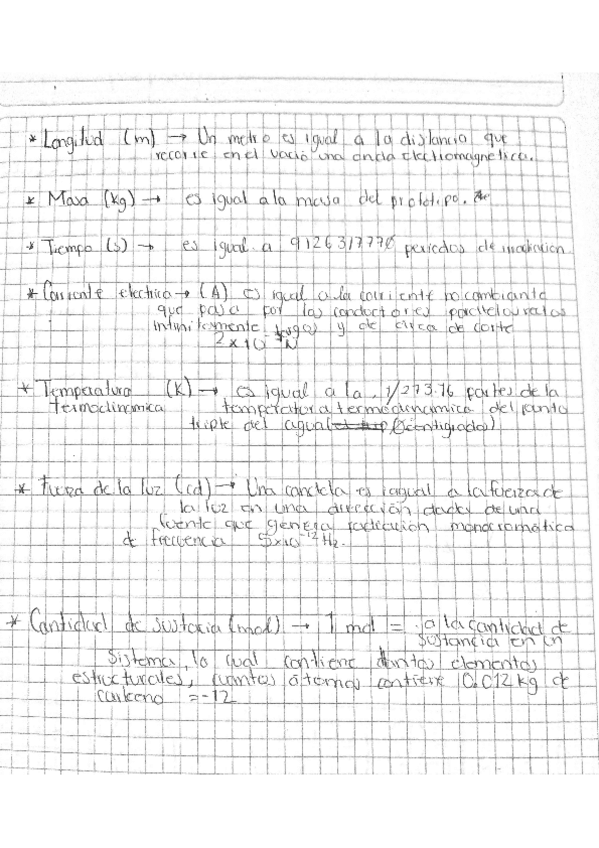 * Longitud (m) → Un metro es igual a la distancia que
recorre en el vacio una onda electromagnetica.
* Masa (kg) → es igual a la masa del prototipo.
* Tiempo (s) → es igual a 9126317770 periodos de
* Corriente electrica → (A) es igual a la corriente no cambiante
que pasa por los conductores
infinitamente largos y de circa de corte
2x10⁻⁷N
* Temperatura (K) → es igual a la 1/273.16 partes de la
Termodinamica temperatura termodinamica del punto
triple del agua (centigrados)
* Fuerza de la luz (cd) → Una candela es iagual a la fuerza de
la luz en una dirección dada de una
fuente que genera radiación monocromática
de frecuencia 5x10⁻¹² Hz.
* Cantidad de sustacia (mol) → 1 mol = a la cantidad de
sustancia en un
sistema, la cual contiene elementos
estructurales, cuantos atomos contiene 0.012 kg de
carbono =-12